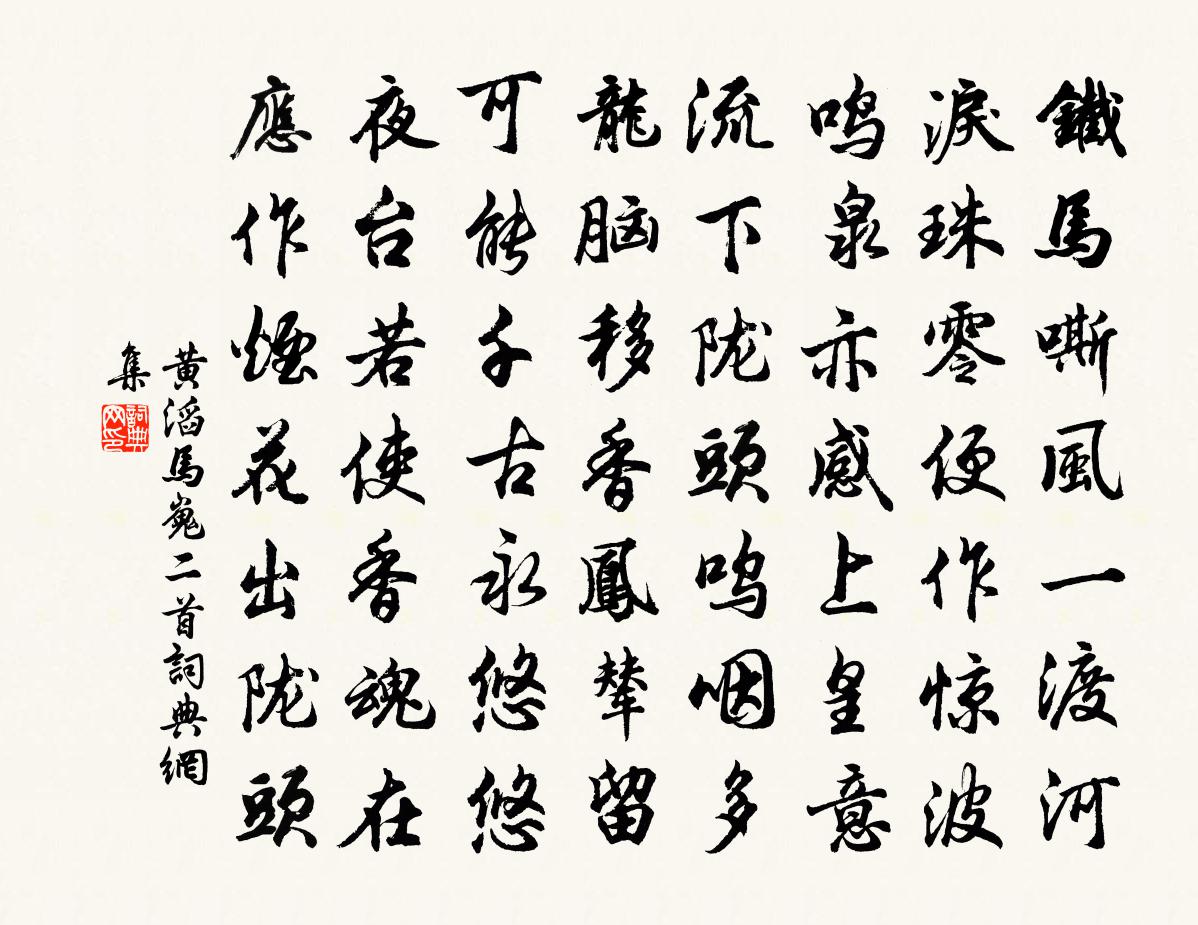 鐵馬嘶風一渡河
淚珠零便作惊波
鸣泉亦感上皇意
流下陇頭鸣咽多
龍脑移香鳳輦留
可能千古永悠悠
夜台若使香魂在
應作煙花出陇頭
黄滔馬嵬二首詞典網
集
詞典
网印